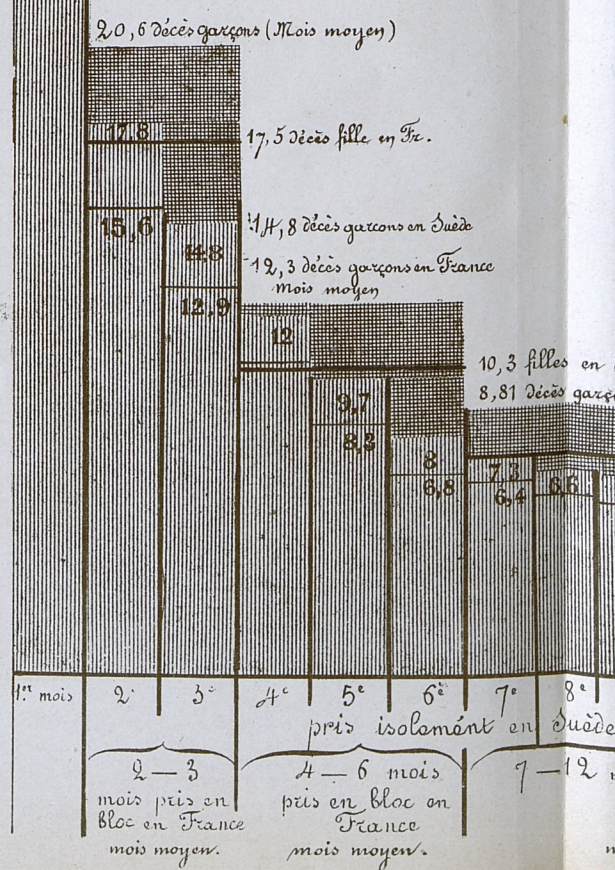 20,6 décès garçons (Mois moyen)
17,8
17,5 décès fille en Fr.
15,6
14,8 décès garcons en Suède
14,8
12,3 décès garçons en France
mois moyen
12,9
12
10,3 filles en
8,81 décès
9,7
8,3
8
6,8
7,3
6,4
6,6
1er mois 2e 3e 4e 5e 6e 7e 8e
pris isolemént en Suède
2 — 3
mois pris en
bloc en France
mois moyen.
4 — 6 mois
pris en bloc en
France
mois moyen.
7 — 12